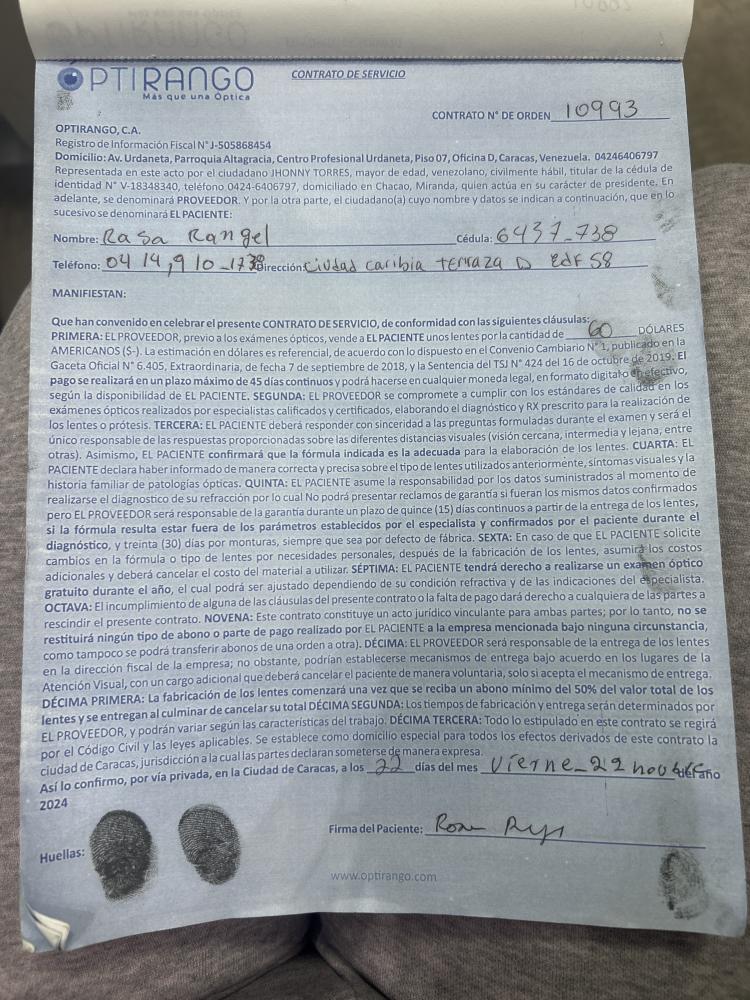 OPTIRANGO
Más que una Óptica
CONTRATO DE SERVICIO
CONTRATO N° DE ORDEN 10993
OPTIRANGO, C.A.
Registro de Información Fiscal N° J-505868454
Domicilio: Av. Urdaneta, Parroquia Altagracia, Centro Profesional Urdaneta, Piso 07, Oficina D, Caracas, Venezuela. 04246406797
Representada en este acto por el ciudadano JHONNY TORRES, mayor de edad, venezolano, civilmente hábil, titular de la cédula de
identidad N° V-18348340, teléfono 0424-6406797, domiciliado en Chacao, Miranda, quien actúa en su carácter de presidente. En
adelante, se denominará PROVEEDOR. Y por la otra parte, el ciudadano(a) cuyo nombre y datos se indican a continuación, que en lo
sucesivo se denominará EL PACIENTE:
Nombre: Rasa Rangel Cédula: 6437-738
Teléfono: 0414,910-1738 Dirección: ciudad caribia terraza D EdF 58
MANIFIESTAN:
Que han convenido en celebrar el presente CONTRATO DE SERVICIO, de conformidad con las siguientes cláusulas:
PRIMERA: El PROVEEDOR, previo a los exámenes ópticos, vende a EL PACIENTE unos lentes por la cantidad de 60 DÓLARES
AMERICANOS (S-). La estimación en dólares es referencial, de acuerdo con lo dispuesto en el Convenio Cambiario N° 1, publicado en la
Gaceta Oficial N° 6.405, Extraordinaria, de fecha 7 de septiembre de 2018, y la Sentencia del TSJ N° 424 del 16 de octubre de 2019. El
pago se realizará en un plazo máximo de 45 días continuos y podrá hacerse en cualquier moneda legal, en formato digital o en efectivo,
según la disponibilidad de EL PACIENTE. SEGUNDA: EL PROVEEDOR se compromete a cumplir con los estándares de calidad en los
exámenes ópticos realizados por especialistas calificados y certificados, elaborando el diagnóstico y RX prescrito para la realización de
los lentes o prótesis. TERCERA: EL PACIENTE deberá responder con sinceridad a las preguntas formuladas durante el examen y será el
único responsable de las respuestas proporcionadas sobre las diferentes distancias visuales (visión cercana, intermedia y lejana, entre
otras). Asimismo, EL PACIENTE confirmará que la fórmula indicada es la adecuada para la elaboración de los lentes. CUARTA: EL
PACIENTE declara haber informado de manera correcta y precisa sobre el tipo de lentes utilizados anteriormente, síntomas visuales y la
historia familiar de patologías ópticas. QUINTA: EL PACIENTE asume la responsabilidad por los datos suministrados al momento de
realizarse el diagnostico de su refracción por lo cual No podrá presentar reclamos de garantía si fueran los mismos datos confirmados
pero EL PROVEEDOR será responsable de la garantía durante un plazo de quince (15) días continuos a partir de la entrega de los lentes,
si la fórmula resulta estar fuera de los parámetros establecidos por el especialista y confirmados por el paciente durante el
diagnóstico, y treinta (30) días por monturas, siempre que sea por defecto de fábrica. SEXTA: En caso de que EL PACIENTE solicite
cambios en la fórmula o tipo de lentes por necesidades personales, después de la fabricación de los lentes, asumirá los costos
adicionales y deberá cancelar el costo del material a utilizar. SÉPTIMA: EL PACIENTE tendrá derecho a realizarse un examen óptico
gratuito durante el año, el cual podrá ser ajustado dependiendo de su condición refractiva y de las indicaciones del especialista.
OCTAVA: El incumplimiento de alguna de las cláusulas del presente contrato o la falta de pago dará derecho a cualquiera de las partes a
rescindir el presente contrato. NOVENA: Este contrato constituye un acto jurídico vinculante para ambas partes; por lo tanto, no se
restituirá ningún tipo de abono o parte de pago realizado por EL PACIENTE a la empresa mencionada bajo ninguna circunstancia,
como tampoco se podrá transferir abonos de una orden a otra). DÉCIMA: EL PROVEEDOR será responsable de la entrega de los lentes
en la dirección fiscal de la empresa; no obstante, podrían establecerse mecanismos de entrega bajo acuerdo en los lugares de la
Atención Visual, con un cargo adicional que deberá cancelar el paciente de manera voluntaria, solo si acepta el mecanismo de entrega.
DÉCIMA PRIMERA: La fabricación de los lentes comenzará una vez que se reciba un abono mínimo del 50% del valor total de los
lentes y se entregan al culminar de cancelar su total DÉCIMA SEGUNDA: Los tiempos de fabricación y entrega serán determinados por
EL PROVEEDOR, y podrán variar según las características del trabajo. DÉCIMA TERCERA: Todo lo estipulado en este contrato se regirá
por el Código Civil y las leyes aplicables. Se establece como domicilio especial para todos los efectos derivados de este contrato la
ciudad de Caracas, jurisdicción a la cual las partes declaran someterse de manera expresa.
Así lo confirmo, por vía privada, en la Ciudad de Caracas, a los 22 días del mes Vierne_22 del año
2024
Firma del Paciente:
Huellas:
www.optirango.com